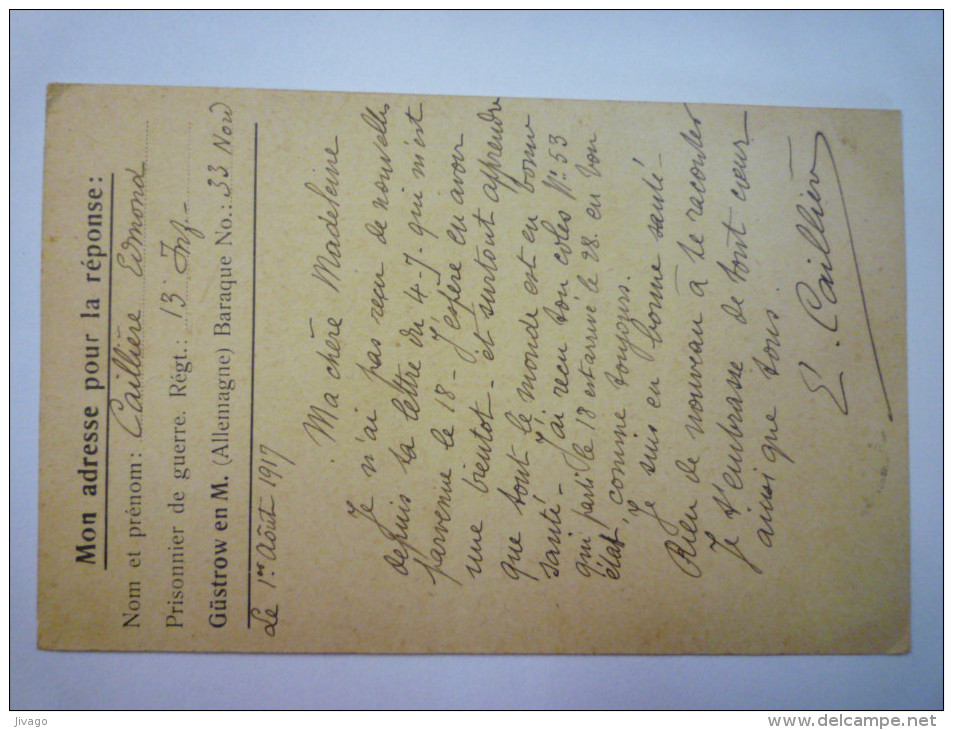 Mon adresse pour la réponse:
Nom et prénom: Caillière Edmond
Prisonnier de guerre. Régt.: 13 Inf.-
Güstrow en M. (Allemagne) Baraque No.: 33 Now
Le 1er Août 1917
Ma chère Madeleine
Je n'ai pas reçu de nouvelles
depuis ta lettre du 4-7. qui m'est
parvenue le 18 - J'espère en avoir
une bientot - et surtout apprendre
que tout le monde est en bonne
santé - J'ai reçu ton colis No 53
qui parti le 18 est arrivé le 28. en bon
état, comme toujours.
Je suis en bonne santé -
Rien de nouveau à te raconter
Je t'embrasse de tout cœur
ainsi que tous.
E. Caillière
Jivago
www.delcampe.net